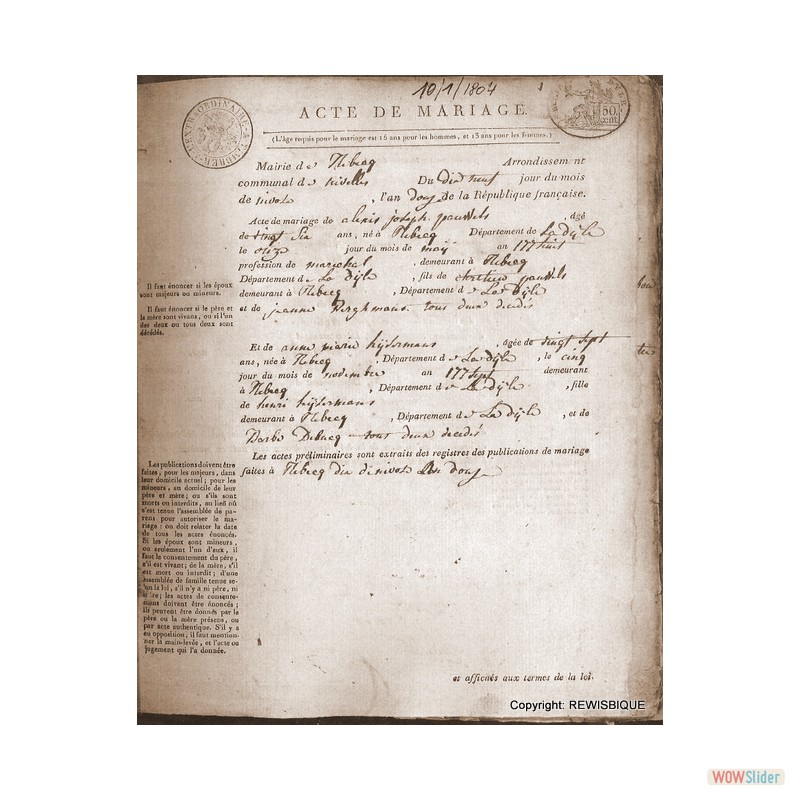 10/1/1804
ACTE DE MARIAGE.
(L'âge requis pour le mariage est 15 ans pour les hommes, et 13 ans pour les femmes.)
TIMBRE EXTRAORDINAIRE
50
Mairie de Rebecq Arrondissement
communal de nivelles Du dix neuf jour du mois
de nivose, l'an douze de la République française.
Acte de mariage de alexis joseph pauwels, âgé
de vingt six ans, né à Rebecq Département de La Dÿle
le onze jour du mois de maÿ an 177 huit
profession de marechal, demeurant à Rebecq
Département de La Dÿle, fils de chretien pauwels
demeurant à Rebecq, Département de La Dÿle
et de jeanne Berghmans tous deux decedés
Et de anne marie hijsermans, âgée de vingt sept
ans, née à Rebecq, Département de La Dÿle, le cinq
jour du mois de novembre an 177 sept demeurant
à Rebecq, Département de La Dÿle, fille
de henri hijsermans
demeurant à Rebecq, Département de La Dÿle, et de
Barbe tous deux decedés
Les actes préliminaires sont extraits des registres des publications de mariage
faites à Rebecq dix de nivose L'an douze
et affichés aux termes de la loi.
Il faut énoncer si les époux
sont majeurs ou mineurs.
Il faut énoncer si le père et
la mère sont vivans, ou si l'un
des deux ou tous deux sont
décédés.
Les publications doivent être
faites, pour les majeurs, dans
leur domicile actuel; pour les
mineurs, au domicile de leur
père et mère; ou s'ils sont
morts ou interdits, au lieu où
s'est tenue l'assemblée de pa-
rens pour autoriser le ma-
riage: on doit relater la date
de tous les actes énoncés.
Si les époux sont mineurs,
ou seulement l'un d'eux, il
faut le consentement du père,
s'il est vivant; de la mère, s'il
est mort ou interdit; d'une
assemblée de famille tenue se-
lon la loi, s'il n'y a ni père, ni
mère; les actes de consente-
mens doivent être énoncés;
ils peuvent être donnés par le
père ou la mère présens, ou
par acte authentique. S'il y a
eu opposition, il faut mention-
ner la main-levée, et l'acte ou
jugement qui l'a donnée.
Copyright: REWISBIQUE
WOWSlider